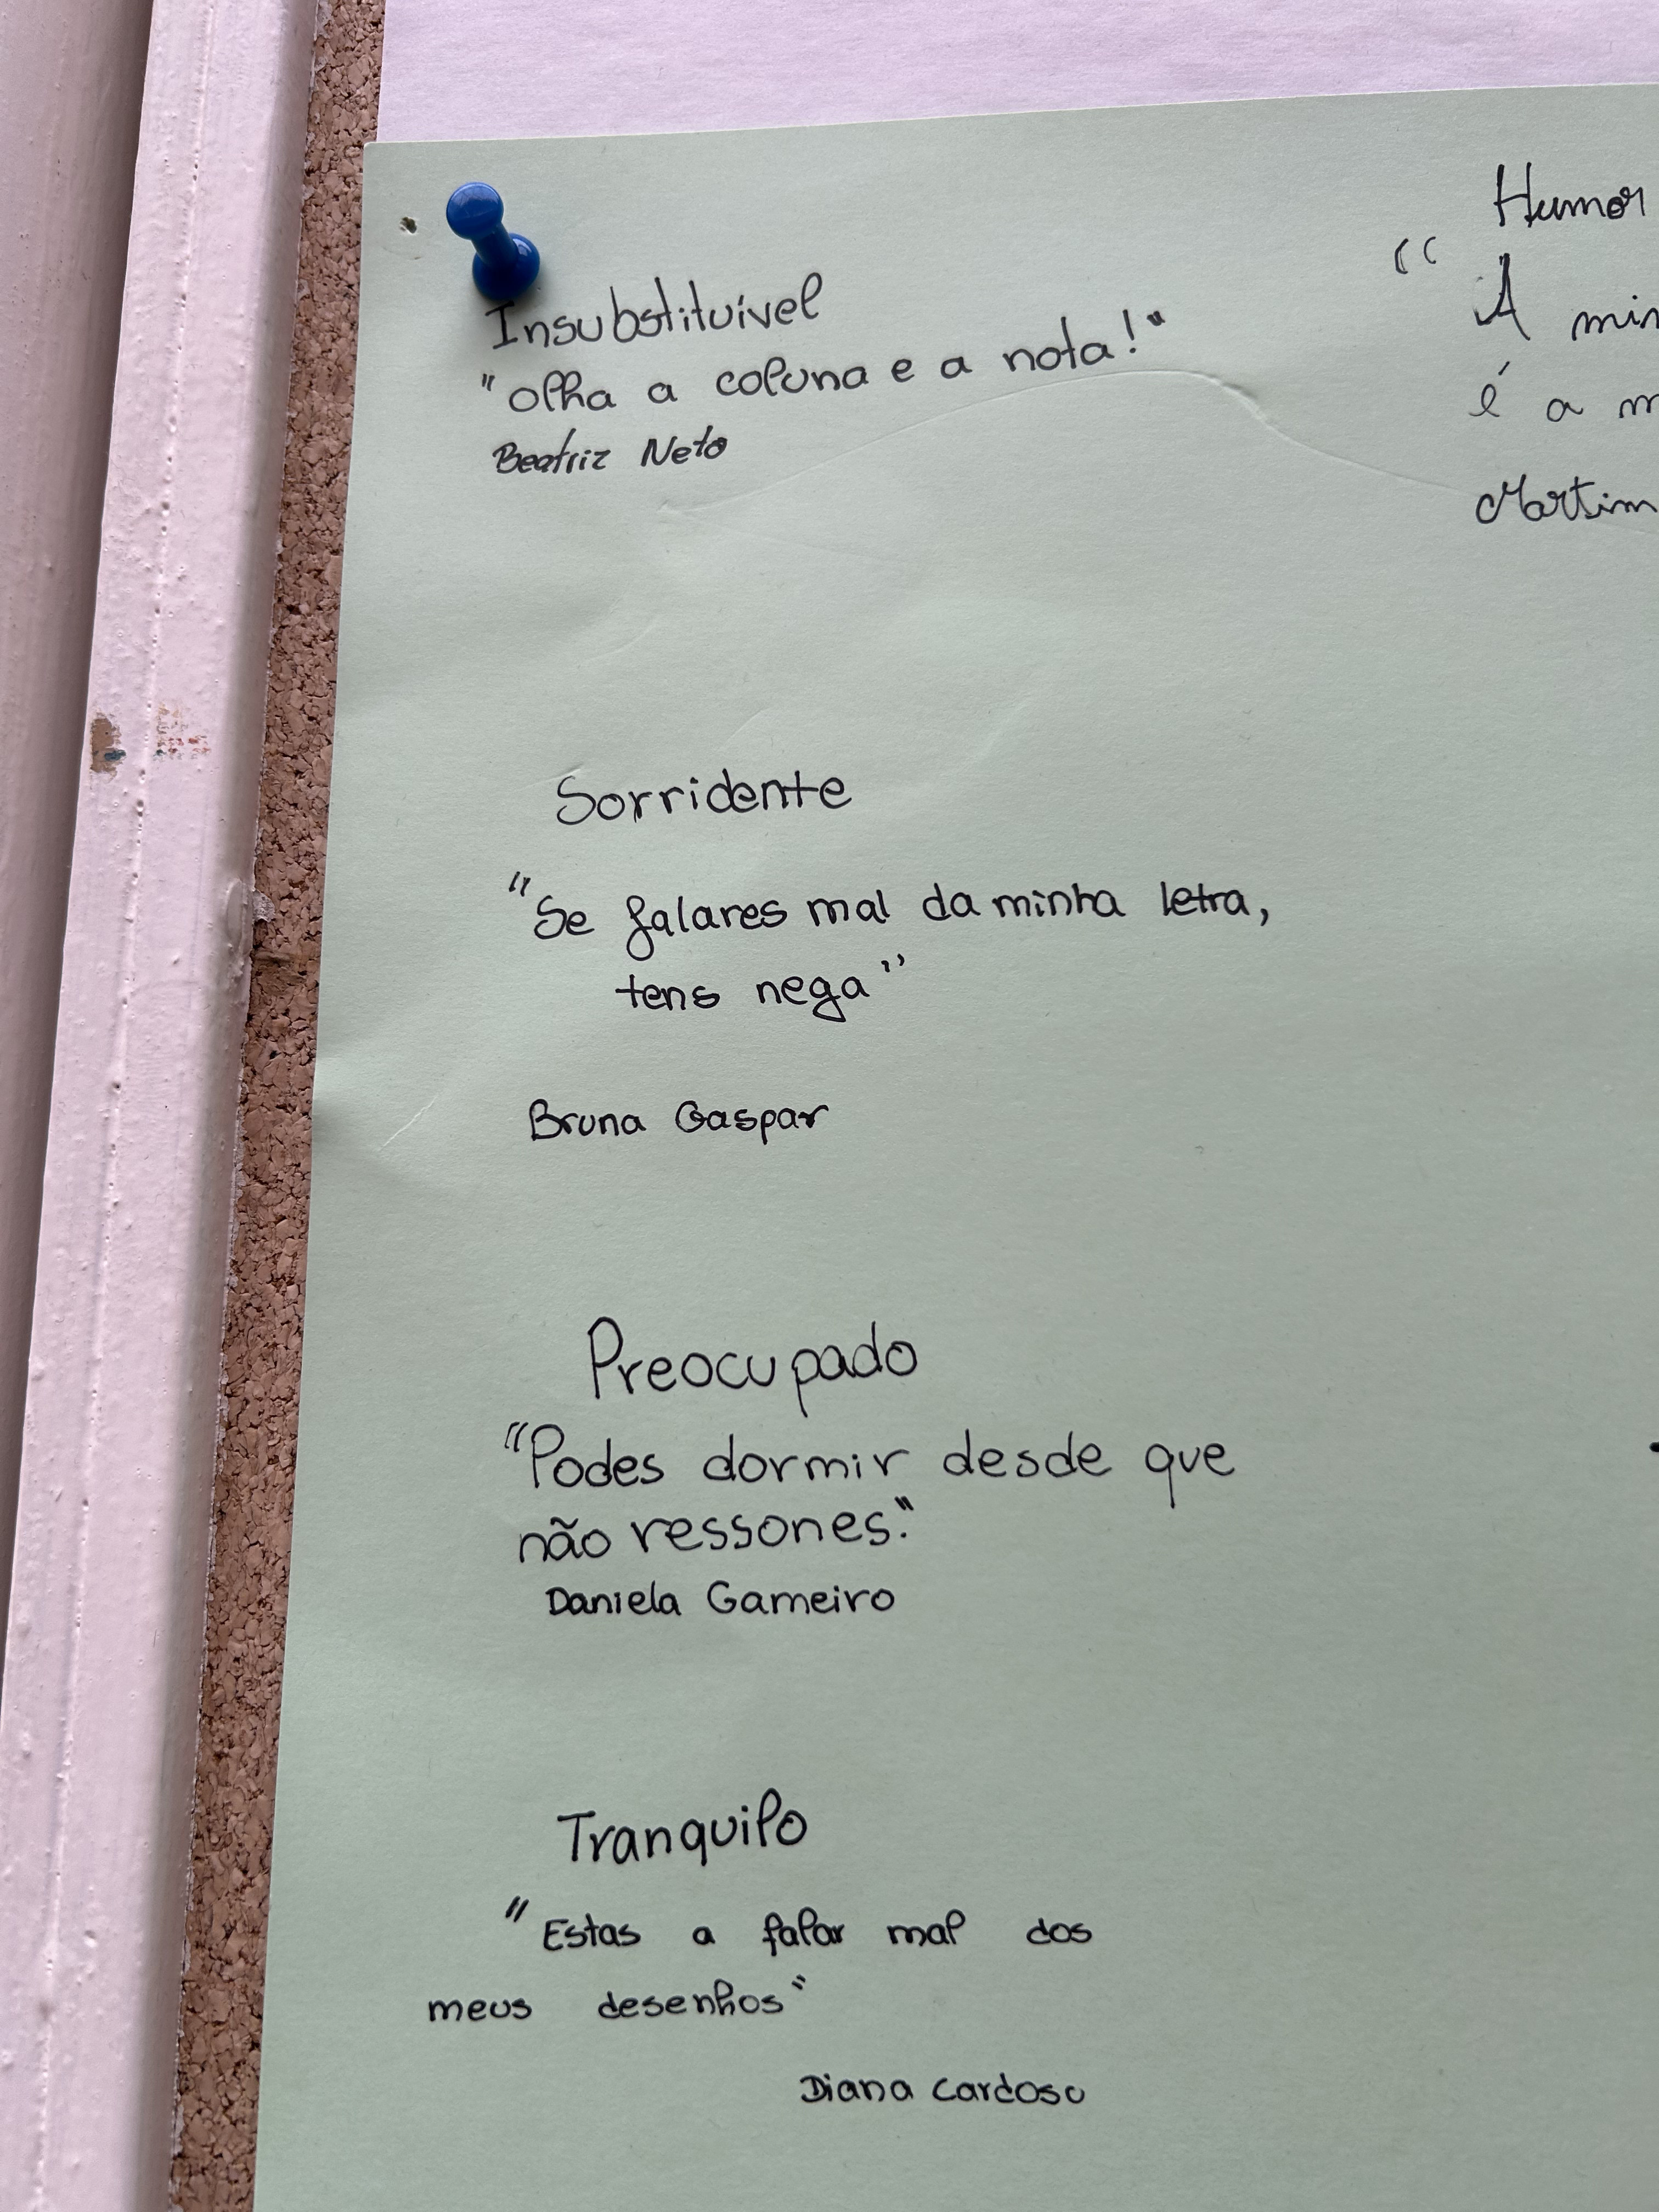 Insubstituível
"Olha a coluna e a nota!"
Beatriz Neto
Sorridente
"Se falares mal da minha letra,
tens nega"
Bruna Gaspar
Preocupado
"Podes dormir desde que
não ressones."
Daniela Gameiro
Tranquilo
"Estas a falar mal dos
meus desenhos"
Diana Cardoso
Humor
"A
é a
Martim